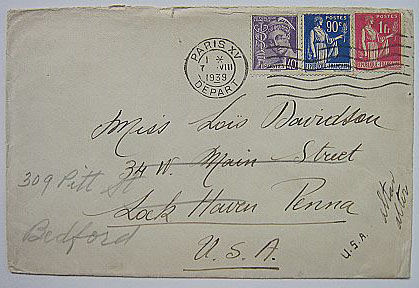 PARIS XV
1 *
7 VIII
1939
DEPART
40
POSTES
90c
POSTES
1f
Miss Lois Davidson
34 W. Main Street
Lock Haven Penna
U.S.A.
309 Pitt St
Bedford
U.S.A.